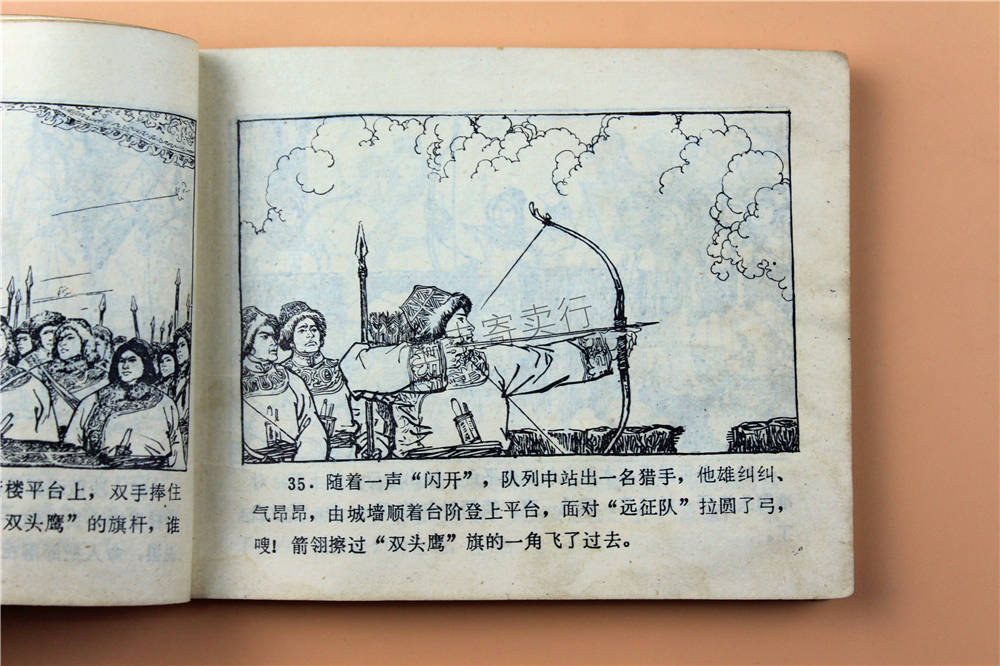 楼平台上，双手捧住
双头鹰”的旗杆，谁
寄卖行
35．随着一声“闪开”，队列中站出一名猎手，他雄纠纠、
气昂昂，由城墙顺着台阶登上平台，面对“远征队”拉圆了弓，
嗖！箭翎擦过“双头鹰”旗的一角飞了过去。